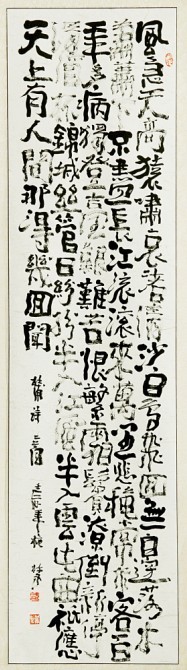 風急天高猿嘯哀渚清沙白鳥飛迴無邊落木
蕭蕭下不盡長江滾滾來萬里悲秋常作客百
年多病獨登臺艱難苦恨繁霜鬢潦倒新停
濁酒杯錦城絲管日紛紛半入江風半入雲此曲祇應
天上有人間那得幾回聞
杜甫詩二首